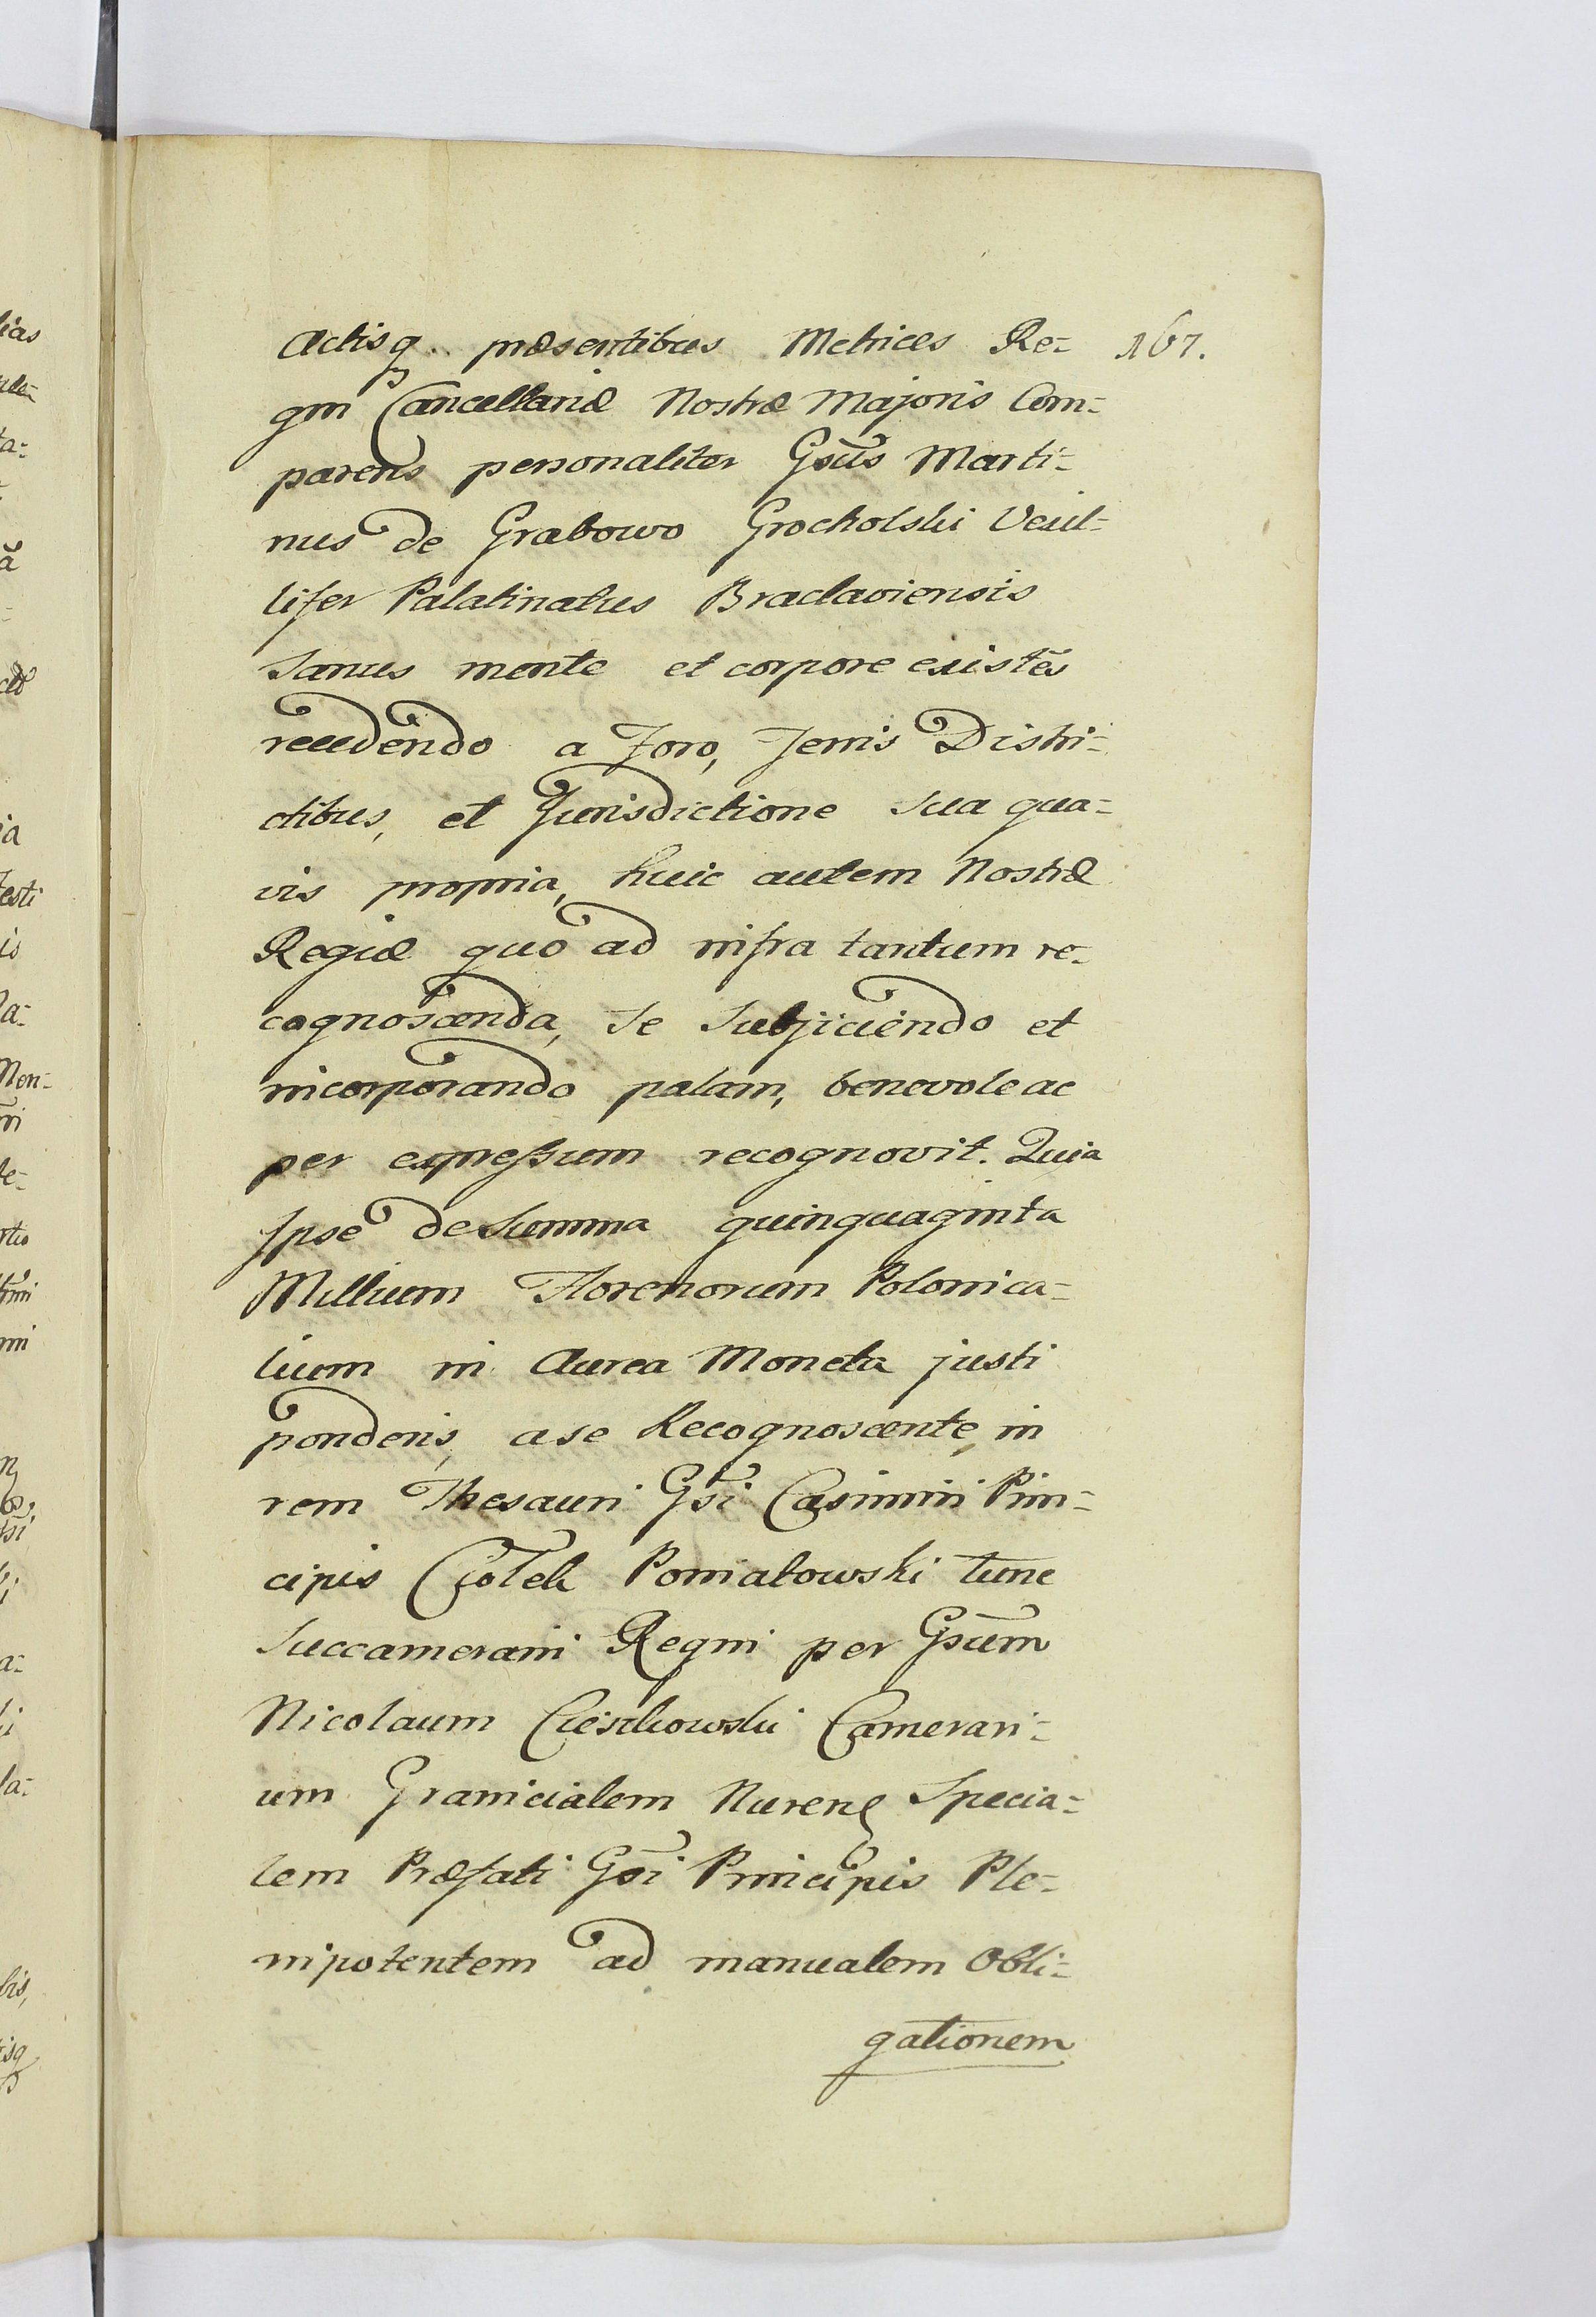 Actisq. præsentibus Metrices Re= 167.
gni Cancellariæ Nostræ Majoris Com=
parens personaliter Gsūs Marti=
nus de Grabowo Grocholski Vexil=
lifer Palatinatus Braclaviensis
Sanus mente et corpore existēs
recedendo a Foro, Terris Distri=
ctibus, et Jurisdictione sua qua=
vis propria, huic autem Nostræ
Regiæ quo ad infra tantum re=
cognoscenda, se Subjiciendo et
incorporando palam, benevole ac
per expressum recognovit. Quia
Ipse de Summa quinquaginta
Millium Florenorum Polonica=
lium in Aurea Moneta justi
ponderis, a se Recognoscente, in
rem Thesauri Gsī Casimiri Prin=
cipis Ciołek Poniatowski tunc
Succamerarii Regni per Gsūm
Nicolaum Cieszkowski Camerari=
um Granicialem Nurens Specia=
lem Præfati Gsī Principis Ple=
nipotentem ad manualem Obli=
gationem